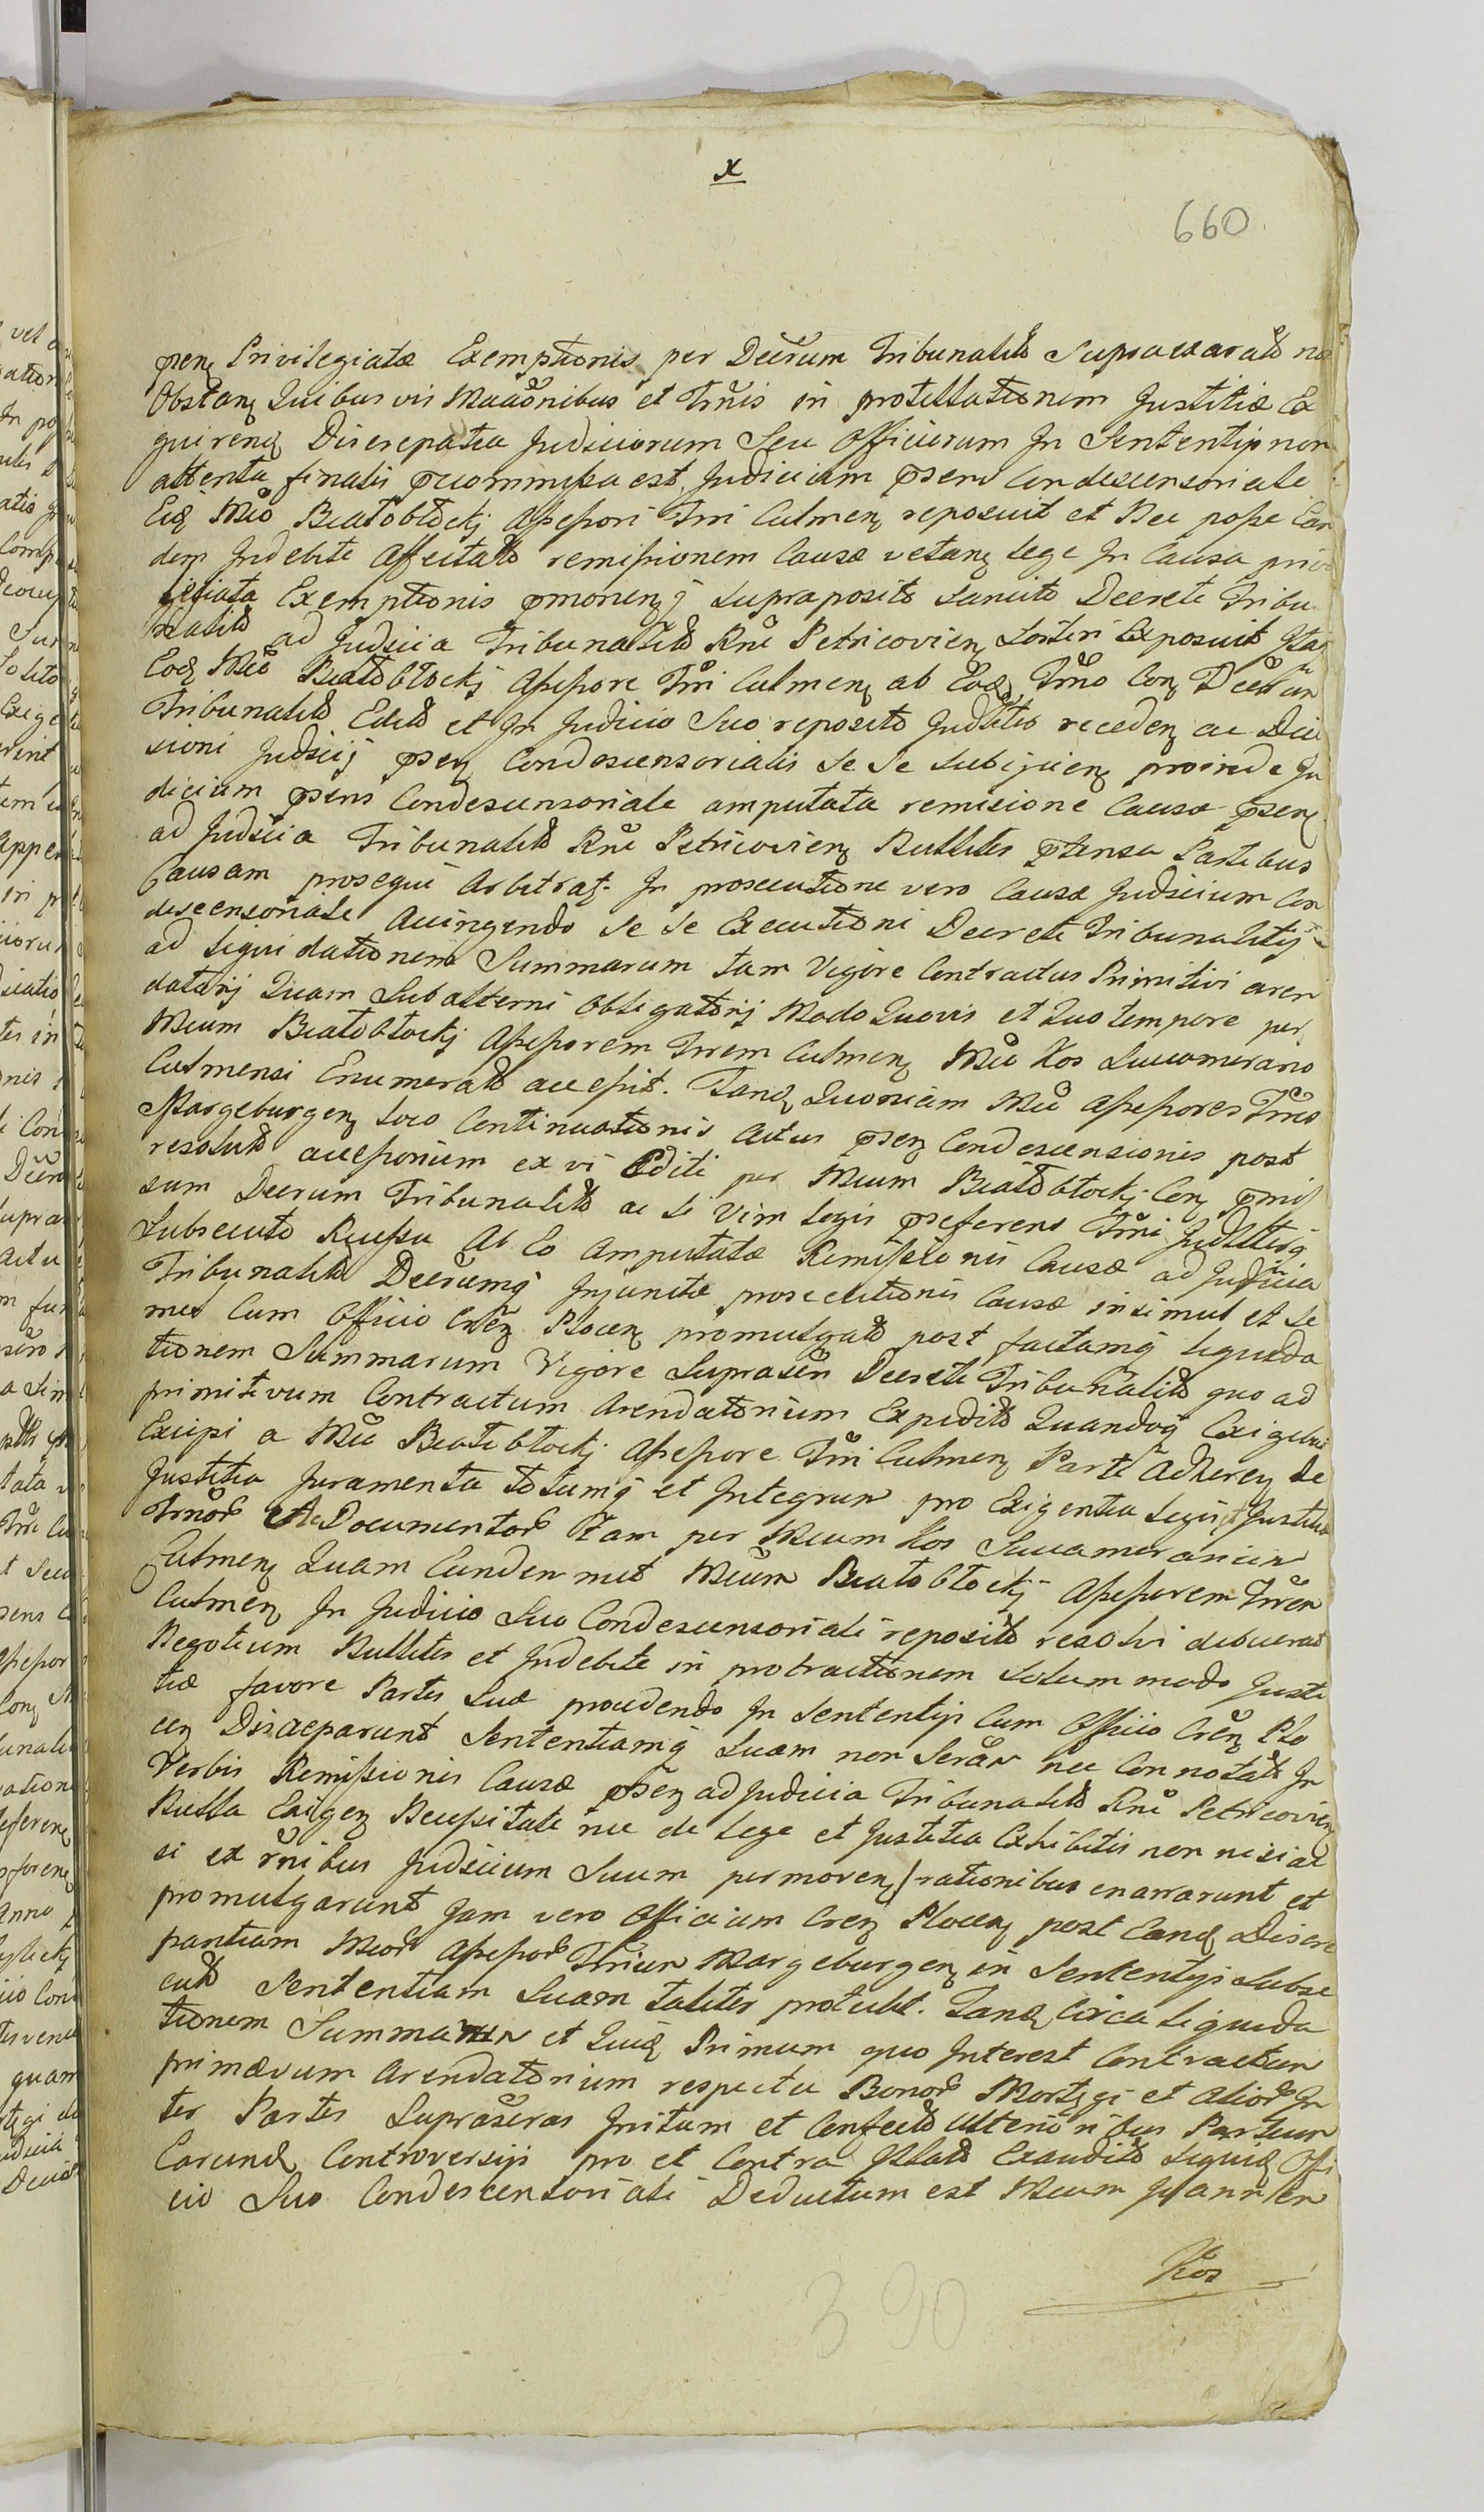 x
660.
psen Privilegiatæ Exemptionis per Decrum Tribunalito Supraexarato non
Obstan Quibusvis Maaonibus et Trnis in protellationem Justitiæ Ex
quiren Discrepatea Judiciorum Seu Officiorum In Sententijs non
attenta finalis pcommissa est, Judicium psens Condescensoriale
Eid Mco Białobłockj Assessori Trri Culmen reposuit et Nec posse Ean
dem Indebite Affectato remissionem Causæ vetan Lege In Causa privi
legiata Exemptionis pmonenj Supraposito Sancito Decrete Tribu
nalito ad Judicia Tribunalito Rni Petricovien Sortiri Exposuit Itaq
Eod Mco Białobłockj Assessore Trri Culmen ab Eod Trno Con Decrum
Tribunalito Edito et In Judicio Suo reposito Judlliter receden ac Deci
sioni Judicij psen Condescensorialis Se Se Subijcien proinde Ju
dicium psens Condescensoriale amputata remisione Causæ psen
ad Judicia Tribunalito Rni Petricovien Nulliter ptensa Partibus
Causam prosequi Arbitrat. In prosecutione vero Causæ Judicium Con
descensoriale Accingendo Se Se Executioni Decreti Tribunalitij
ad Liquidationem Summarum tam Vigore Contractus Primitivi aren
datorij Quam Subalterni Obligatorij Modo Quovis et Quo tempore per
Mcum Białobłockj Assessorem Trrem Culmen Mco Kos Succamerario
Culmensi Enumerato accessit. Tand Quoniam Mci Assessores Trres
Margeburgen Loco Continuationis Actus psen Condescensionis post
resoluto accessorium ex vi Editi per Mcum Białobłockj Con pmis
sum Decrum Tribunalito ac Si Vim Legis pseferens Trni Judlliterq
Subsecuto Recessu Ab Eo Amputatæ Remissionis Causæ ad Judicia
Tribunalito Decrumq Injunctæ prosecutionis Causæ insimul et Se
mel Cum Officio Cren Plocen promulgato post factamq Liquida
tionem Summarum Vigore Suprascri Decreti Tribunalito quo ad
primitivum Contractum Arendatorium Expedito Quandoq Exigebat
Excipi a Mco Białobłockj Assessore Trri Culmen Parti Adheren de
Justitia Juramenta totumq et Integrum pro Exigentia Legis et Justitiæ
Trnor Ac Documentor Tam per Mcum Kos Succamerarium
Culmen Quam Eundemmet Mcum Białobłockj Assessorem Trrem
Culmen In Judicio Suo Condescensoriali reposito resolvi debuerat
Negotium Nulliter et Indebite in protractionem Solummodo Justi
tiæ favore Partis Suæ procedendo In Sententijs Cum Officio Cren Plo
cen Discreparunt Sententiamq Suam non Seram nec Connotato In
Verbis Remissionis Causæ psen ad Judicia Tribunalito Rni Petricovien
Nulla Exigen Necessitate nec de Lege et Justitia Exhibitis non nisi ac
si ex rnibus Judicium Suum permoven rationibus enararunt et
promulgarunt Jam vero Officium Cren Plocen post Eand Discre
pantiam Mcor Assessor Trrium Margeburgen in Sententijs Subse
cuto Sententiam Suam taliter protulit. Tand Circa Liquida
tionem Summarum et Quid Primum quo Interest Contractum
primævum Arendatorium respectu Bonor Mortęgi et Alior In
ter Partes Suprascras Initum et Confecto Ulterioribus Partium
Earund Controversijs pro et Contra Illato Exaudito Liquid Offi
cio Suo Condescensoriali Deductum est Mcum Joannem
Kos
390